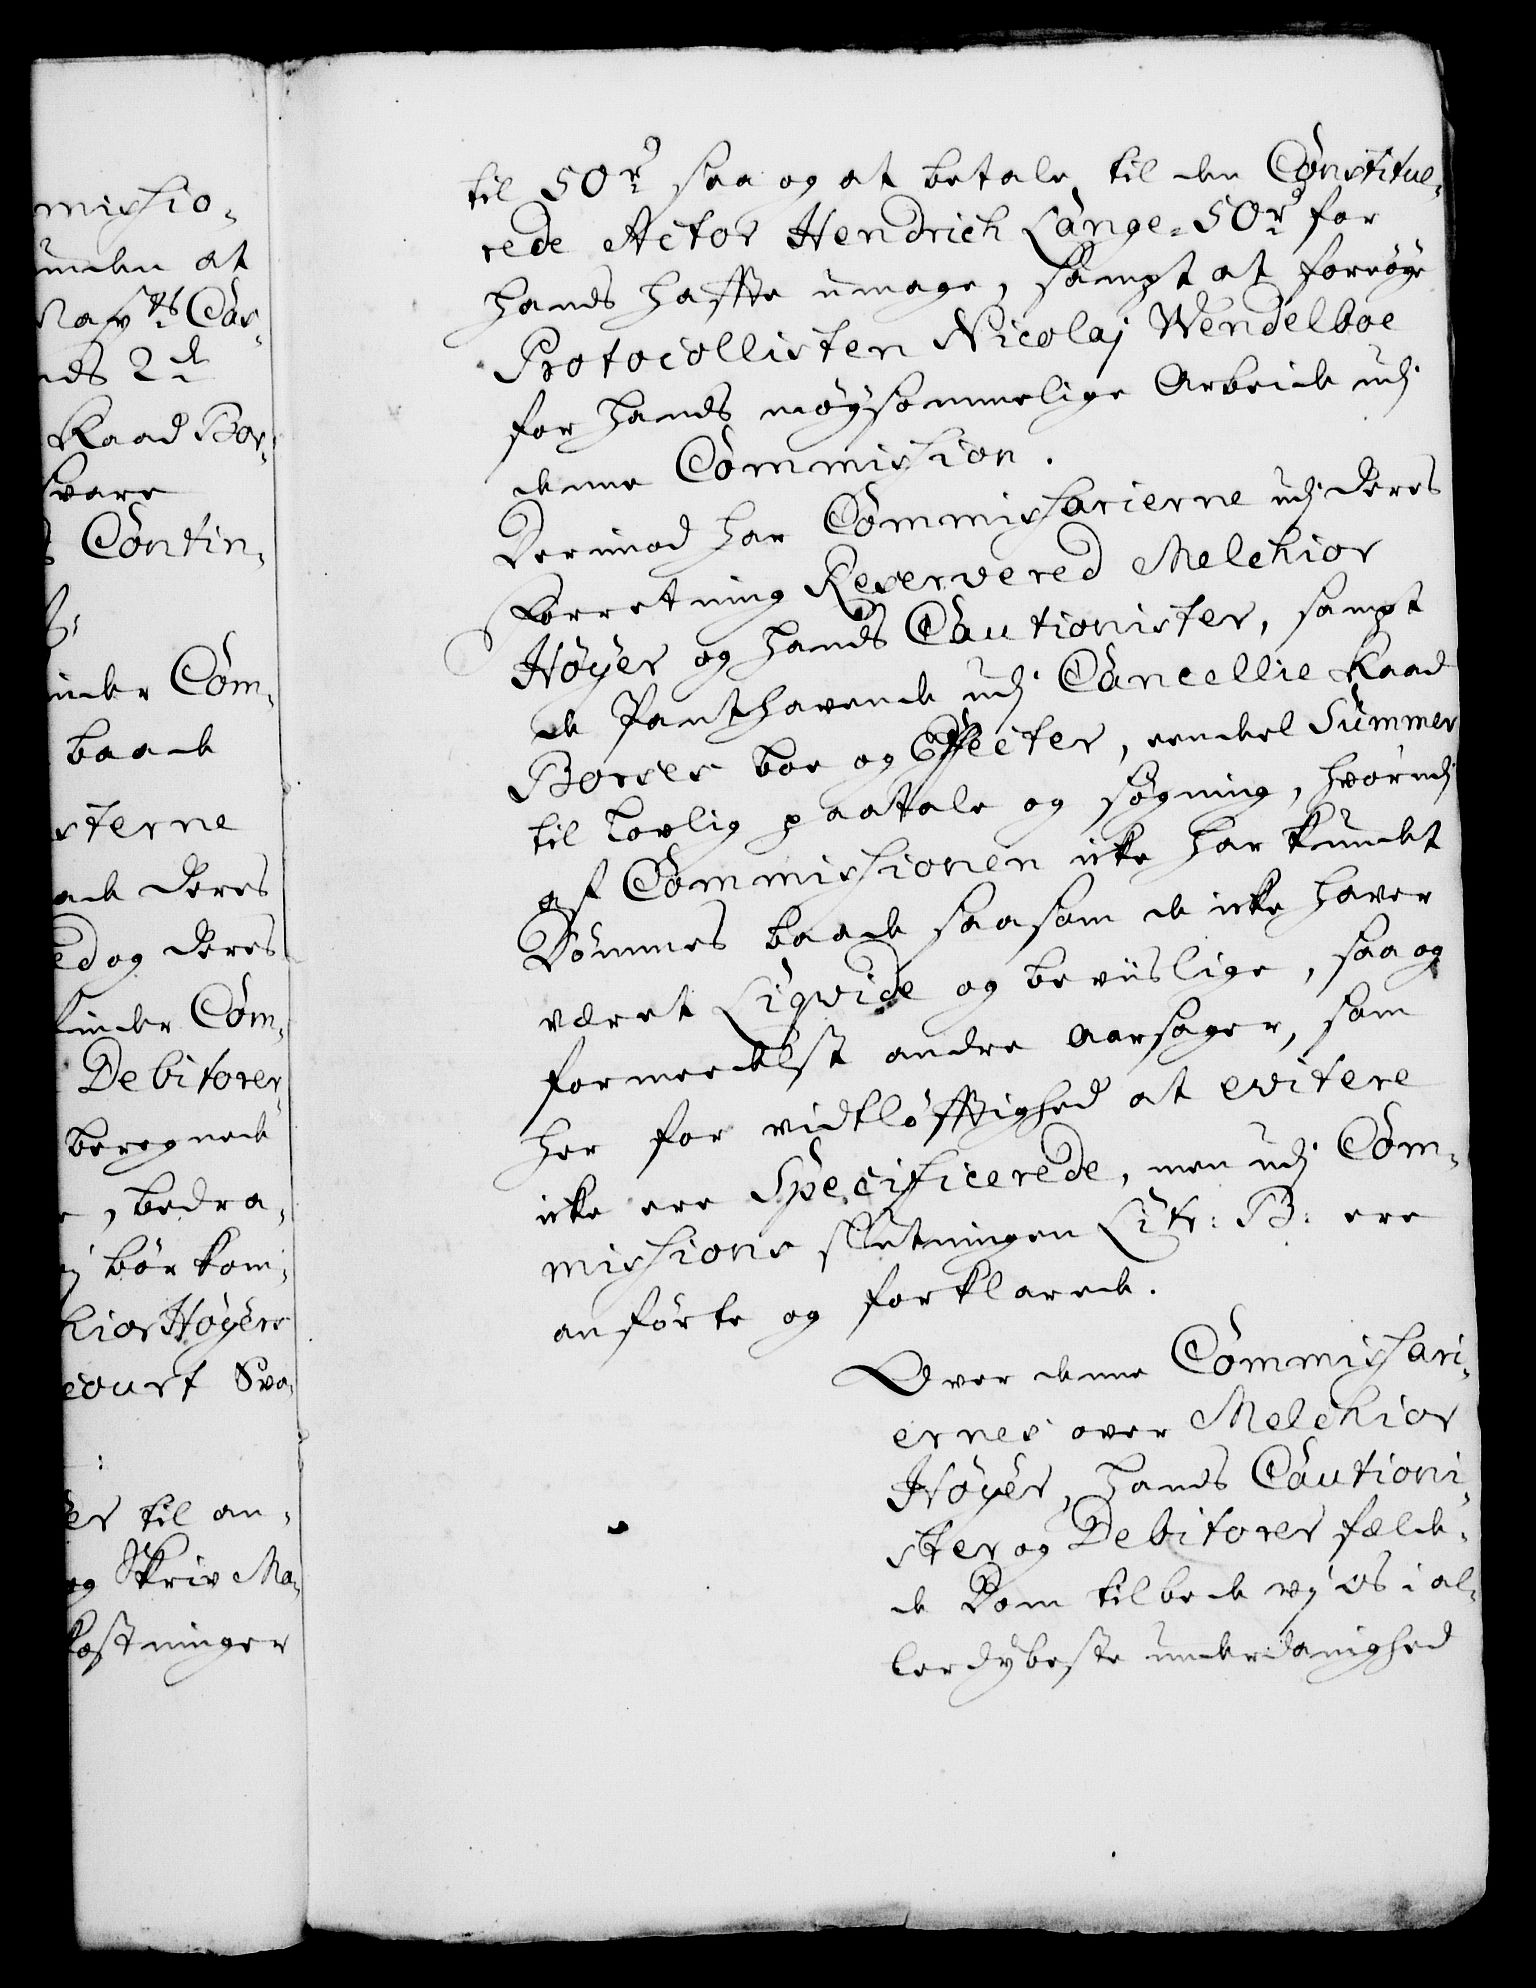 missio-
unden at
May:ts Can-
nds 2d
Raad Bor-
svare
Contin-
under Com-
baade
sterne
ade deres
ed og deres
under Com-
Debitorer
beregnede
, bedra-
bör kom-
chior Höyers
court Sva-
er til an-
og Skriv Ma-
kostninger
til 50 rd saa og at betale til den Constitue-
rede Actor Hendrich Lange 50 rd for
hands haffte umage, sampt at fornöye
Protocollisten Nicolaj Wendelboe
for hands möysommelige Arbeide udj
denne Commission.
Derimod har Commissarierne udj deres
Forretning Reserveret Melchior
Höyer og hands Cautionister, sampt
de Panthavende udj Cancellie Raad
Borses boe og Effecter, eendeel Summer
til lovlig paatale og sögning, hvorudj
af Commissionen icke har kundet
Dömmes baade saasom de icke haver
været Liqvide og beviislige, saa og
formedelst andre Aarsager, som
her for vidtlöfftighed at evitere
icke ere Specificerede, men udj Com-
missions slutningen Litr: B: ere
anförte og forklarede.
Over denne Commissari-
ernes over Melchior
Höyer, hands Cautioni-
ster og Debitorer fælde-
de Dom tilbede vj os i al-
lerdybeste underdanighed